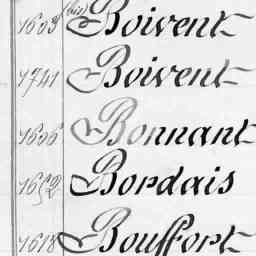 1603 (bis) Boivent
1741 Boivent
1606 Bonnant
1652 Bordais
1618 Bouffort